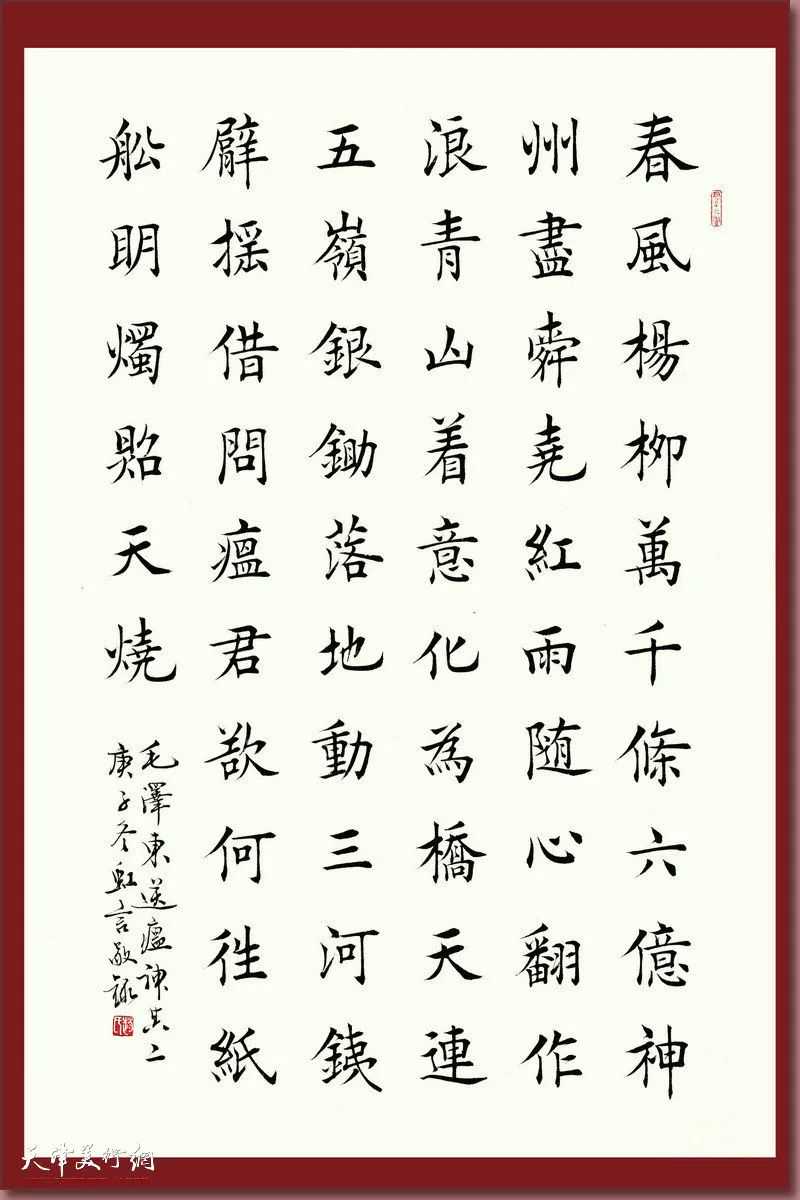 春風楊柳萬千條六億神
州盡舜堯紅雨隨心翻作
浪青山着意化為橋天連
五嶺銀鋤落地動三河鐵
臂搖借問瘟君欲何往紙
船明燭照天燒
毛澤東送瘟神其二
庚子冬虹言敬錄
天津美術網